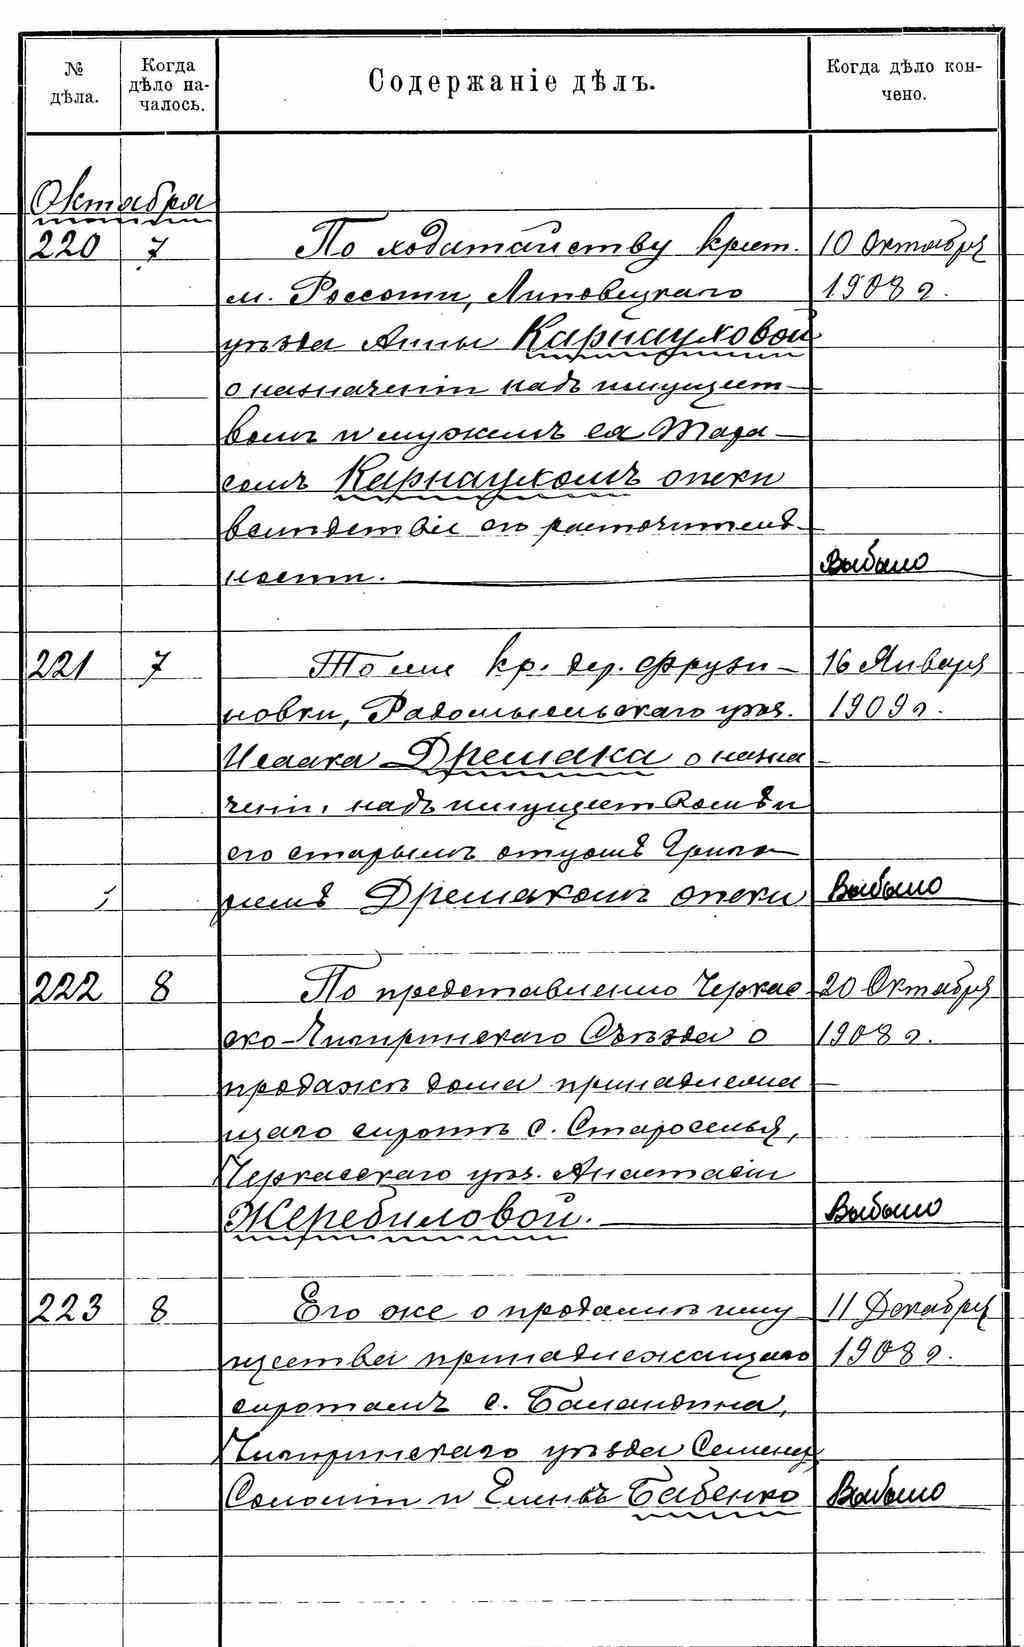 № дѣла. Когда дѣло началось. Содержаніе дѣлъ. Когда дѣло кончено.
Октября
220 7 По ходатайству крест. 10 Октября
м. Россоши, Липовецкаго 1908 г.
уѣзда Анны Карнауховой
о назначеніи надъ имущест-
вомъ и мужемъ ея Тара-
сомъ Карнаухомъ опеки
вслѣдствіе его расточитель-
ности. Выбыло
221 7 То же кр. дер. Фрузи- 16 Января
новки, Радомысльскаго уѣз. 1909 г.
Исаака Дремака о назна-
ченіи надъ имуществомъ и
его старымъ отцомъ Григо-
ріемъ Дремакомъ опеки Выбыло
222 8 По представленію Черкас- 20 Октября
ско-Чигиринскаго Съѣзда о 1908 г.
продажѣ дома принадлежа-
щаго сиротѣ с. Староселья,
Черкасскаго уѣз. Анастасіи
Жеребиловой. Выбыло
223 8 Его же о продажѣ иму 11 Декабря
щества принадлежащаго 1908 г.
сиротамъ с. Баландина,
Чигиринскаго уѣзда Семену,
Соломіи и Еленѣ Бабенко Выбыло